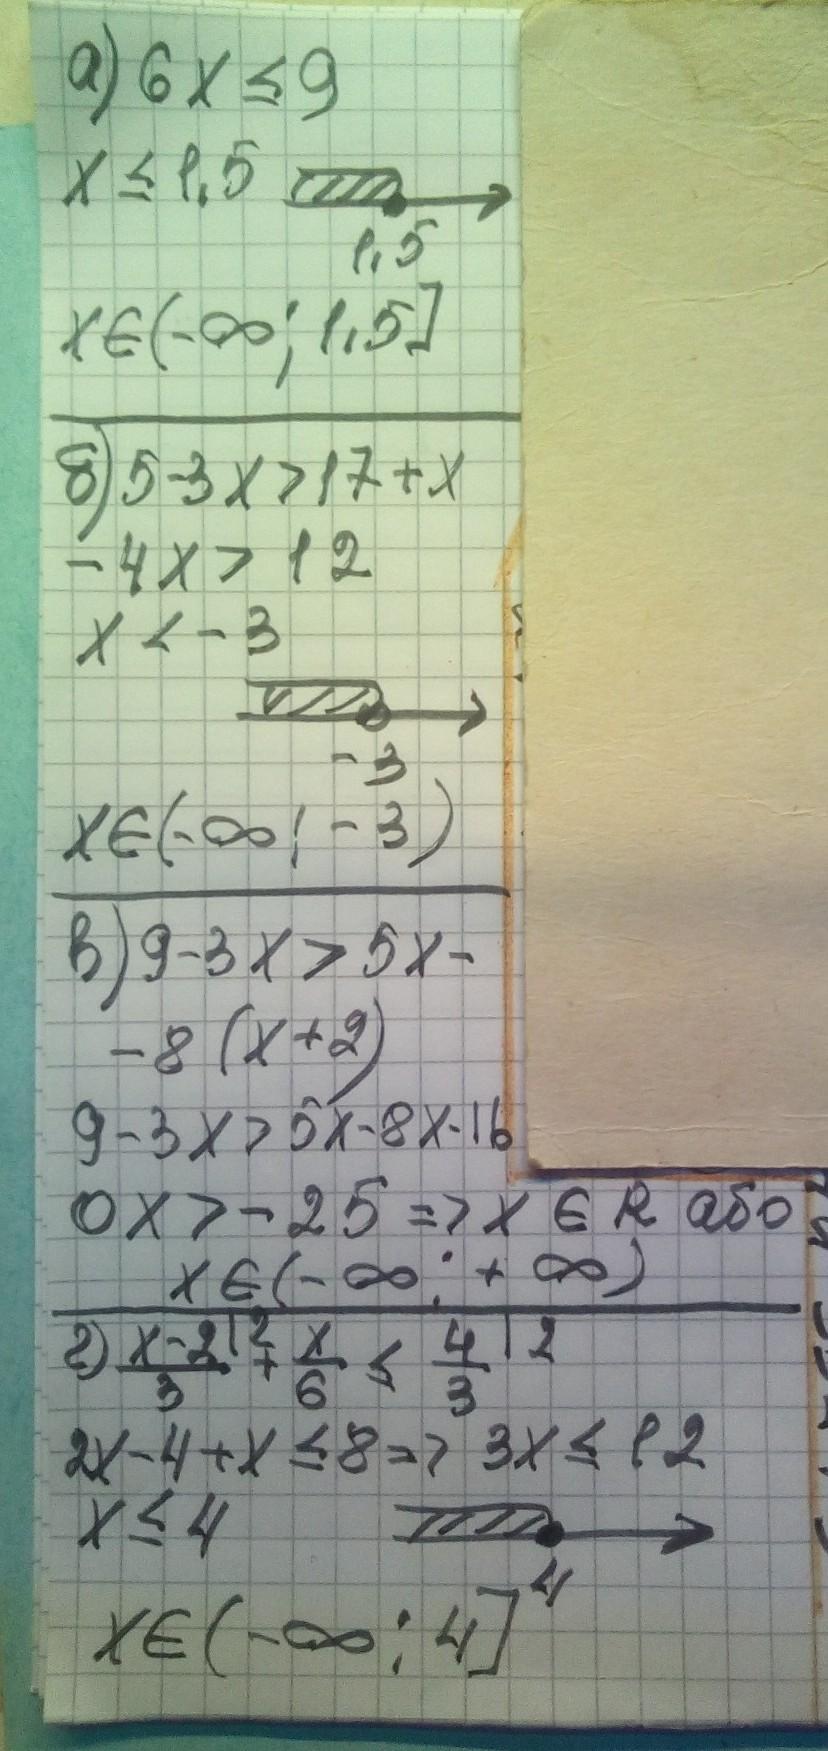 а) 6x ≤ 9
x ≤ 1,5
1,5
x∈(-∞; 1,5]
б) 5-3x > 17+x
-4x > 12
x < -3
-3
x∈(-∞; -3)
в) 9-3x > 5x-
-8(x+2)
9-3x > 5x-8x-16
0x > -25 => x ∈ R або
x∈(-∞; +∞)
г) (x-2)/3 |2 + x/6 ≤ 4/3 |2
2x-4+x ≤ 8 => 3x ≤ 12
x ≤ 4
4
x∈(-∞; 4]